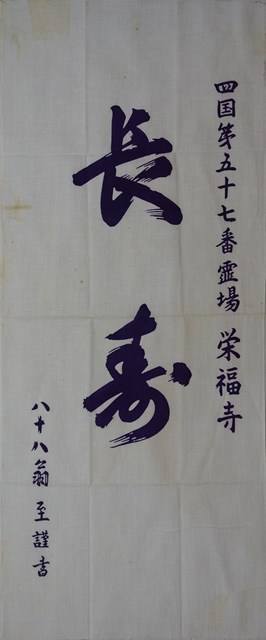 四国第五十七番霊場 栄福寺
長寿
八十八翁至謹書